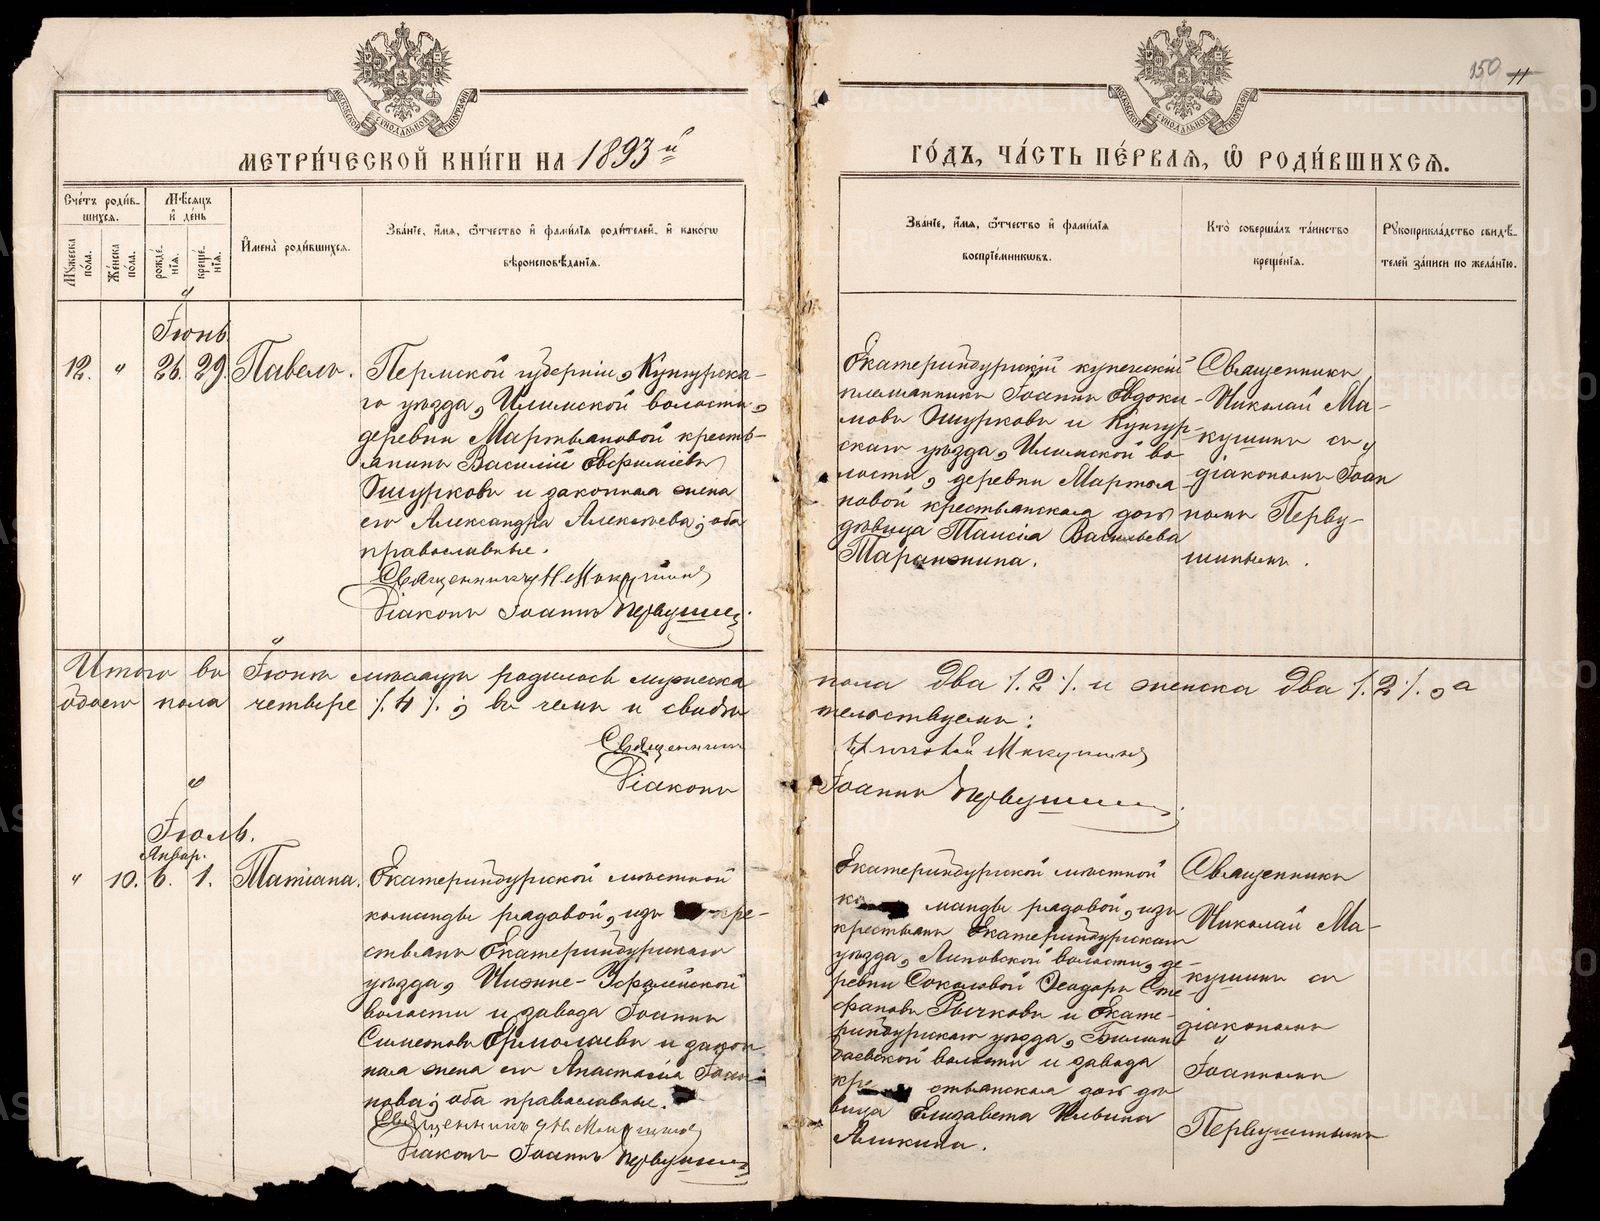 150 11
МЕТРИ́ЧЕСКОЙ КНИ́ГИ НА 1893й
ГО́ДЪ, ЧА́СТЬ ПЕ́РВАЯ, Ѡ҆ РОДИ́ВШИХСЯ.
Сче́тъ роди́в-
шихся.
Мꙋ́жеска
по́ла.
Же́нска
по́ла.
Мѣ́сяцъ
и҆ де́нь
рожде́-
нїѧ.
креще́-
нїѧ.
И҆мена̀ роди́вшихся.
Зва́нїе, и҆́мя, ѻ҆́тчество и҆ фами́лїя роди́телей, и҆ како́гѡ
вѣроисповѣ́данїя.
Зва́нїе, и҆́мя, ѻ҆́тчество и҆ фами́лїя
воспрїе́мникѡвъ.
Кто̀ соверша́лъ та́инство
креще́нїя.
Рꙋкоприкла́дство свидѣ́-
телей за́писи по жела́нїю.
Іюнь
12. " 26. 29. Павелъ.
Пермской губерніи, Кунгурска-
го уѣзда, Илимской волости,
деревни Мартьяновой кресть-
янинъ Василій Евфиміевъ
Ошурковъ и законная жена
его Александра Алексѣева; оба
православные.
Священникъ Н Макушинъ
Діаконъ Іоаннъ Первушинъ.
Екатеринбургскій купеческій
племянникъ Іоаннъ Евдоки-
мовъ Ошурковъ и Кунгур-
скаго уѣзда, Илимской во
лости, деревни Мартья
новой крестьянская дочь
дѣвица Таисія Васильева
Таранжина.
Священникъ
Николай Ма-
кушинъ съ
діакономъ Іоан
номъ Перву-
шинымъ.
Итого въ Іюнѣ мѣсяцѣ родилось мужеска пола два /.2./. и женска два /.2./., а
обоего пола четыре /.4./.; въ чемъ и свидѣ
тельствуемъ:
Священникъ Николай Макушинъ
Діаконъ Іоаннъ Первушинъ.
Іюль.
Январ.
" 10. 6. 1. Татіана.
Екатеринбургской мѣстной
команды рядовой, изъ кре-
стьянъ Екатеринбургскаго
уѣзда, Нижне-Уфалейской
волости и завода Іоаннъ
Симеоновъ Ермолаевъ и закон
ная жена его Анастасія Іоан-
нова; оба православные.
Священникъ Н Макушинъ
Діаконъ Іоаннъ Первушинъ
Екатеринбургской мѣстной
ко манды рядовой, изъ
крестьянъ Екатеринбургскаго
уѣзда, Липовской волости, де-
ревни Соколовой Ѳеодоръ Сте
фановъ Рычковъ и Екате-
ринбургскаго уѣзда, Билим
баевской волости и завода
кре стьянская дочь дѣ
вица Елизавета Ильина
Аликина.
Священникъ
Николай Ма-
кушинъ съ
діакономъ
Іоанномъ
Первушинымъ